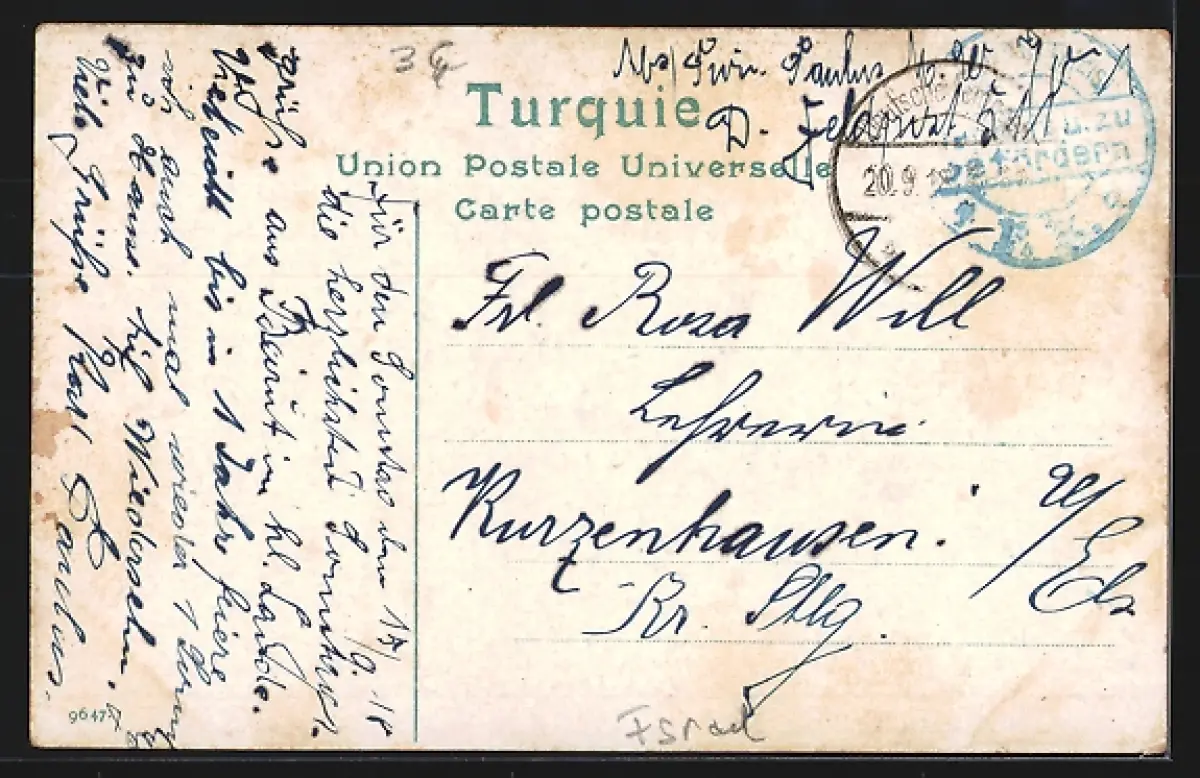 3
Turquie
Union Postale Universelle
Carte postale
Paulus
D. Feldpost
20.9.18
u. zu
befördern
Frl. Rosa Will
Lehrerin
Kurzenhausen.
Kr. Stbg.
Für den Sonntag den 15/9.18
die herzlichsten
Grüße aus Beirut im hl. Lande.
Vielleicht bis in 1 Jahr feiere
ich auch mal wieder 1
zu Hause. Auf Wiedersehn.
Viele Grüße Karl Paulus.
9647
Israel